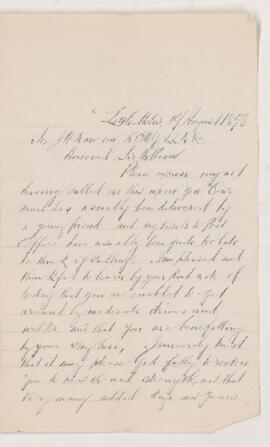 Little Metis, 19 August 1893
Sir J W Dawson K C M G L L D &c
Honored Sir William
Please excuse my not
having called as here upon you Our
mail has usually been delivered by
a young friend and my visits to Post
office have usually been quite too late
to think of calling. I am pleased and
thankful to learn by your kind note of
today that you are enabled to get
around by moderate drives and
walks and that you are benefitting
by your stay here, I sincerely trust
that it may please God fully to restore
you to health and strength, and that
being many added days and years